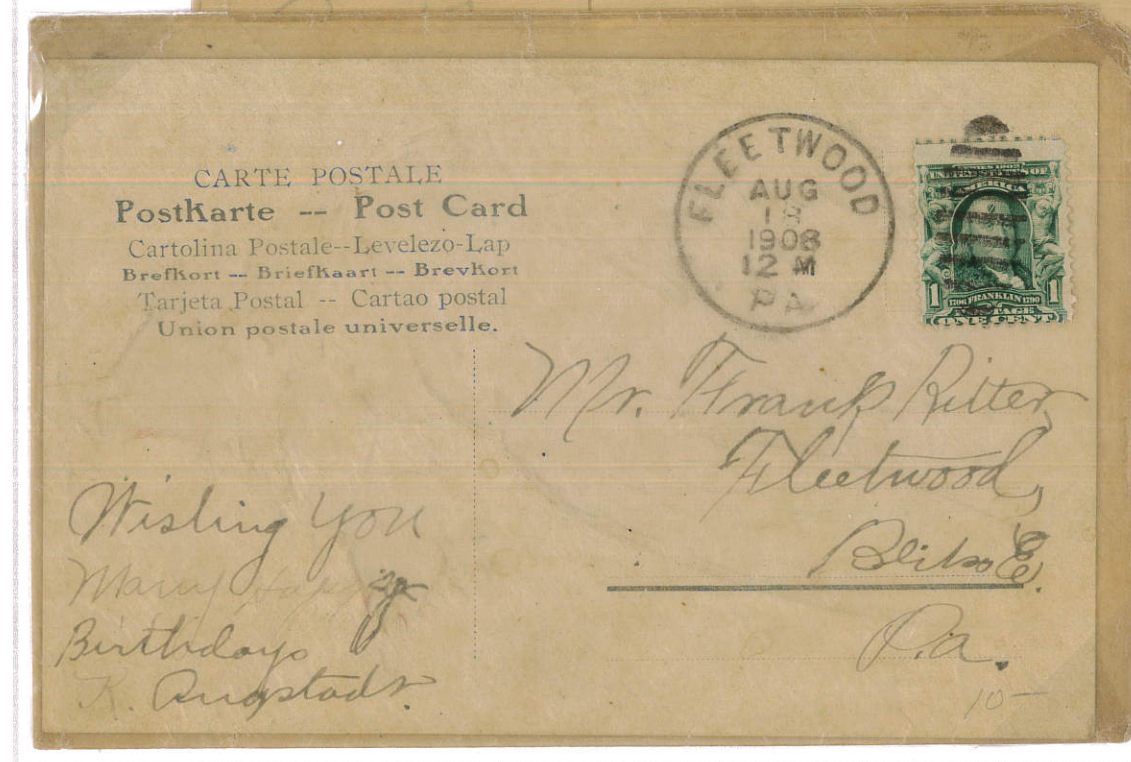 CARTE POSTALE
PostKarte -- Post Card
Cartolina Postale--Levelezo-Lap
Brefkort -- Briefkaart -- Brevkort
Tarjeta Postal -- Cartao postal
Union postale universelle.
FLEETWOOD
AUG
18
1908
12 M
PA
SERIES 1902
UNITED STATES OF
AMERICA
1 1706 FRANKLIN 1790 1
POSTAGE
ONE CENT
Mr. Frank Ritter,
Fleetwood,
Pa.
Wishing You
Many happy
Birthdays
K. Angstadt.
10-